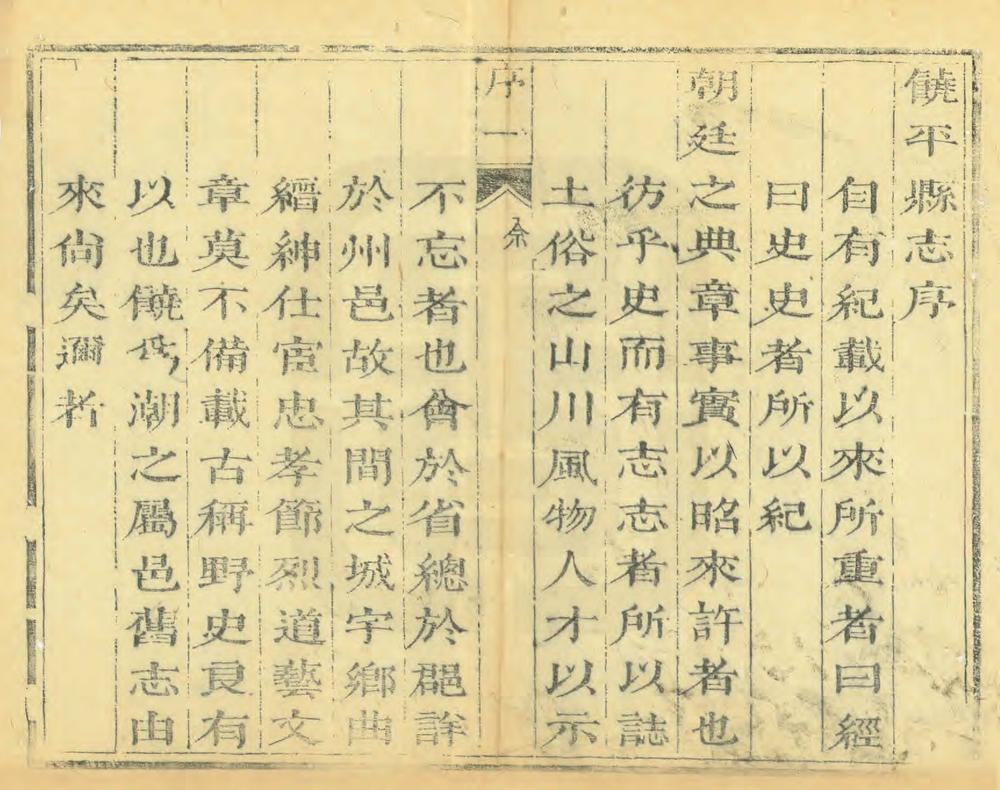 饒平縣志序
自有紀載以來所重者曰經
曰史史者所以紀
朝廷之典章事實以昭來許者也
彷乎史而有志志者所以誌
土俗之山川風物人才以示
序 一 余
不忘者也會於省總於郡詳
於州邑故其間之城宇鄉曲
縉紳仕宦忠孝節烈道藝文
章莫不備載古稱野史良有
以也饒為潮之屬邑舊志由
來尚矣邇者